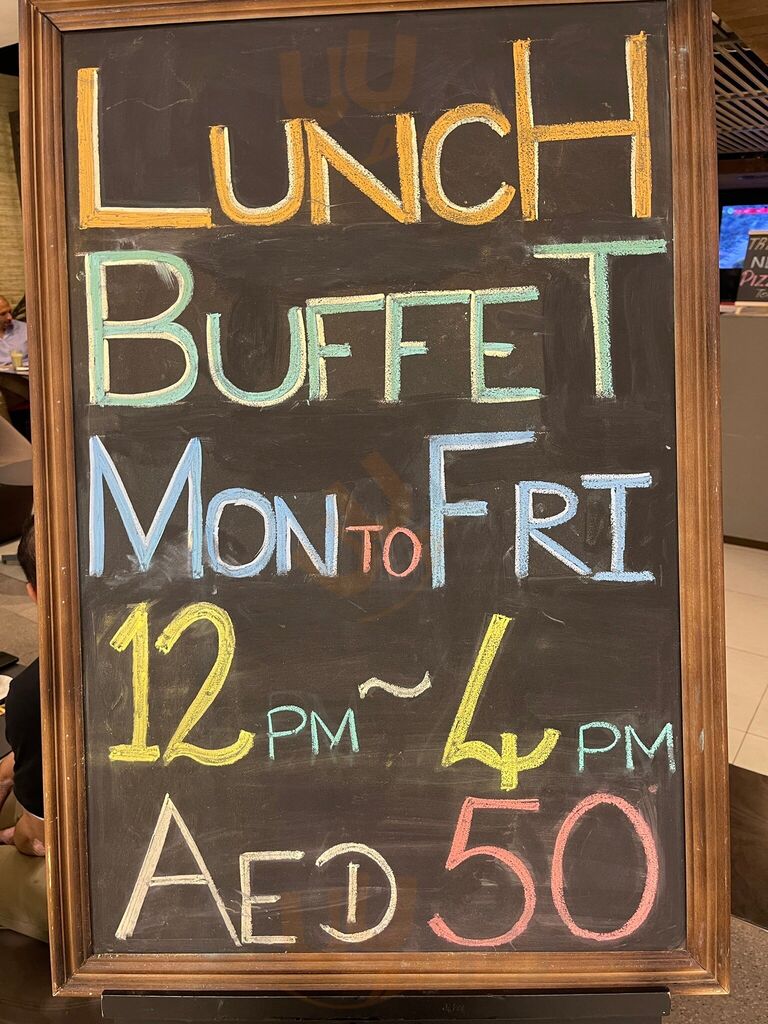 LUNCH
BUFFET
MON TO FRI
12 PM ~ 4 PM
AED 50